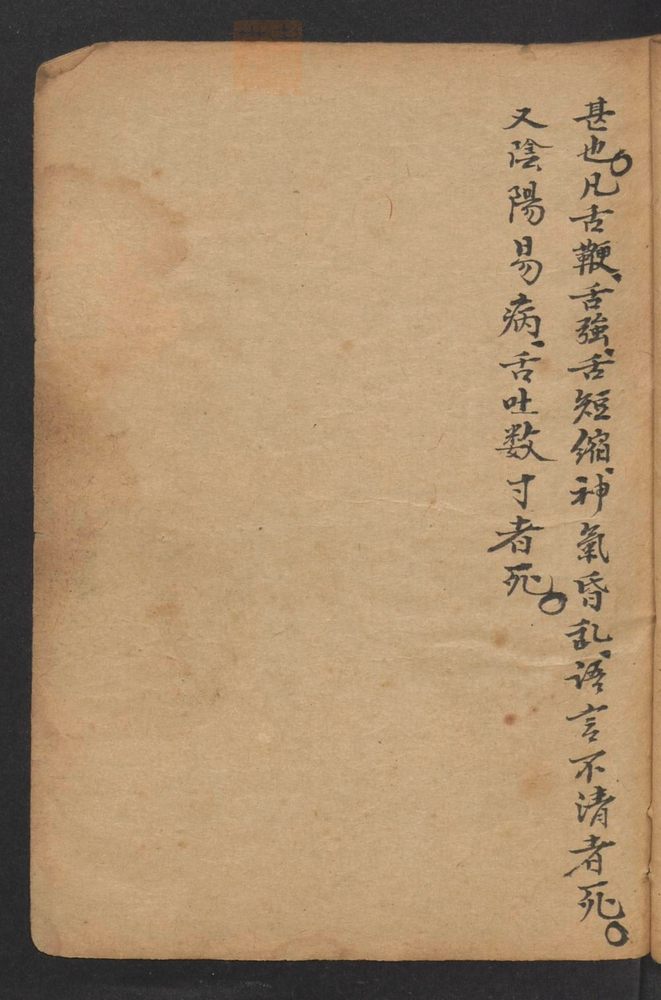 甚也。凡舌鞕、舌強、舌短縮、神氣昏乱、語言不清者死。
又陰陽易病、舌吐数寸者死。